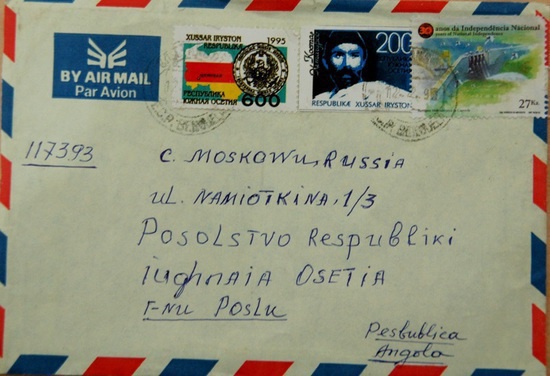 BY AIR MAIL
Par Avion
XUSSAR IRYSTON 1995
RESPUBLIKA
РЕСПУБЛИКА
ЮЖНАЯ ОСЕТИЯ
600
200
RESPUBLIKA XUSSAR IRYSTON
30 anos da Independência Nacional
years of National Independence
27Kz
117393
C. MOSKOWU, RUSSIA
UL. NAMIOTKINA, 1/3
POSOLSTVO RESPUBLIKI
IUGHNAIA OSETIA
G-NU POSLU
Pesbublica
Angola